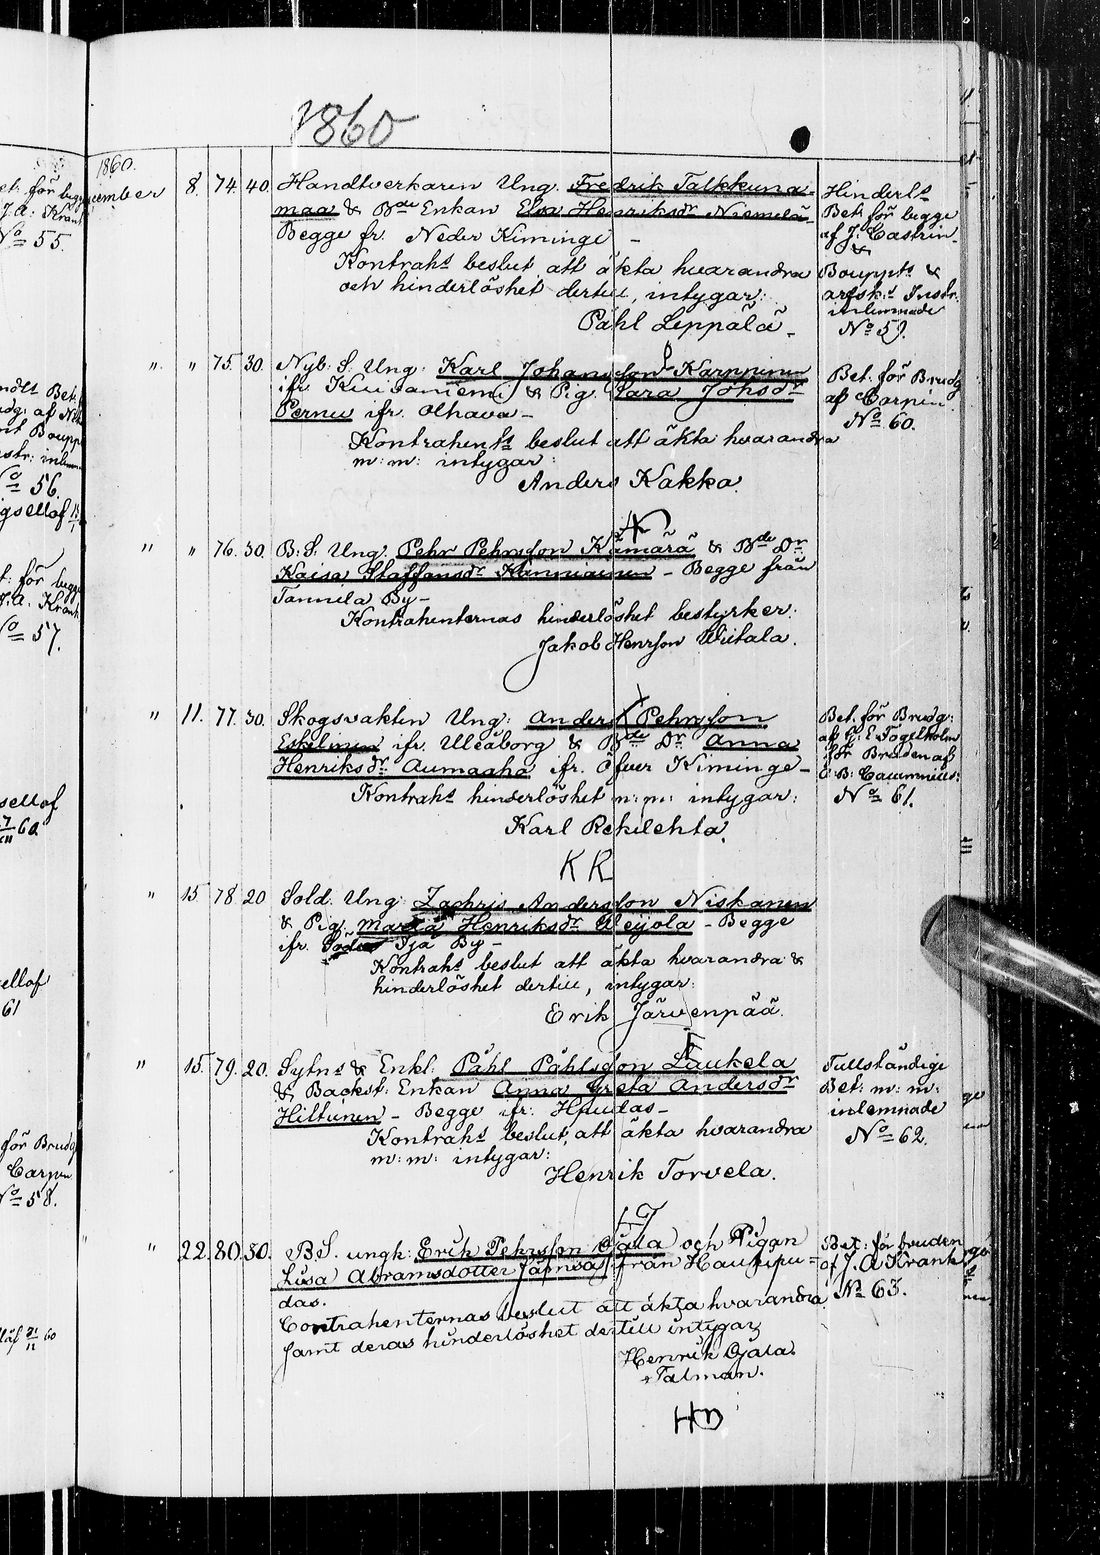 1860
1860.
December 8. 74. 40. Handtverkaren Ung. Fredrik Talkkuna-
maa & Bde Enkan Elsa Henriksdr Niemelä
Begge fr. Neder Kiminge –
Kontrahs beslut att äkta hvarandra
och hinderlöshet dertill, intygar:
Påhl Leppälä
Hinderls
Bet. för begge
af J. Castrin
&
Bouppts &
arfsk:s Instr.
inlemnade
No 59.
" " 75. 30. Nyb. S. Ung. Karl Johansson Karppinen
ifr. Kuivaniemi & Pig. Sara Johsdr
Pernu ifr. Olhava –
Kontrahents beslut att äkta hvarandra
m: m: intygar:
Anders Kakko.
Bet. för Brudg
af Carpin.
No 60.
" " 76. 30. B. S. Ung. Pehr Pehrsson Kämärä & Bde Dr
Kaisa Staffansdr Kanniainen – Begge från
Tannila By –
Kontrahenternas hinderlöshet bestyrker:
Jakob Henrsson Wiitala.
" 11. 77. 30. Skogsvakten Ung: Anders Pehrsson
Eskelinen ifr. Uleåborg & Bde Dr Anna
Henriksdr Aumagha ifr. Öfver Kiminge –
Kontrahs hinderlöshet m: m: intygar:
Karl Rekilehto.
K R
Bet. för Brudg:
af G: E Fogelholm
för Bruden af
No 61.
" 15. 78. 20. Sold. Ung: Zachris Andersson Niskanen
& Pig. Maria Henriksdr Weijola – Begge
ifr. Södra Ijå By –
Kontrahs beslut att äkta hvarandra &
hinderlöshet dertill, intygar:
Erik Järvenpää.
" 15. 79. 20. Sytns & Enkl. Påhl Påhlsson Laukela
& Backst. Enkan Anna Greta Andersdr
Hiltunen – Begge ifr: Haudas –
Kontrahs beslut, att äkta hvarandra
m: m: intygar:
Henrik Torvela.
H T
Fullständige
Bet: m: m:
inlemnade
No 62.
" 22. 80. 30. B. S. ungk: Erik Pehrsson Ojala och Pigan
Lisa Abramsdotter från Haukipu=
das.
Contrahenternas beslut att äkta hvarandra
samt deras hinderlöshet dertill intygar
Henrik Ojala
Talman.
Bet: för bruden
af J. A Krank
No 63.
No 55.
No 56.
No 57.
No 58.